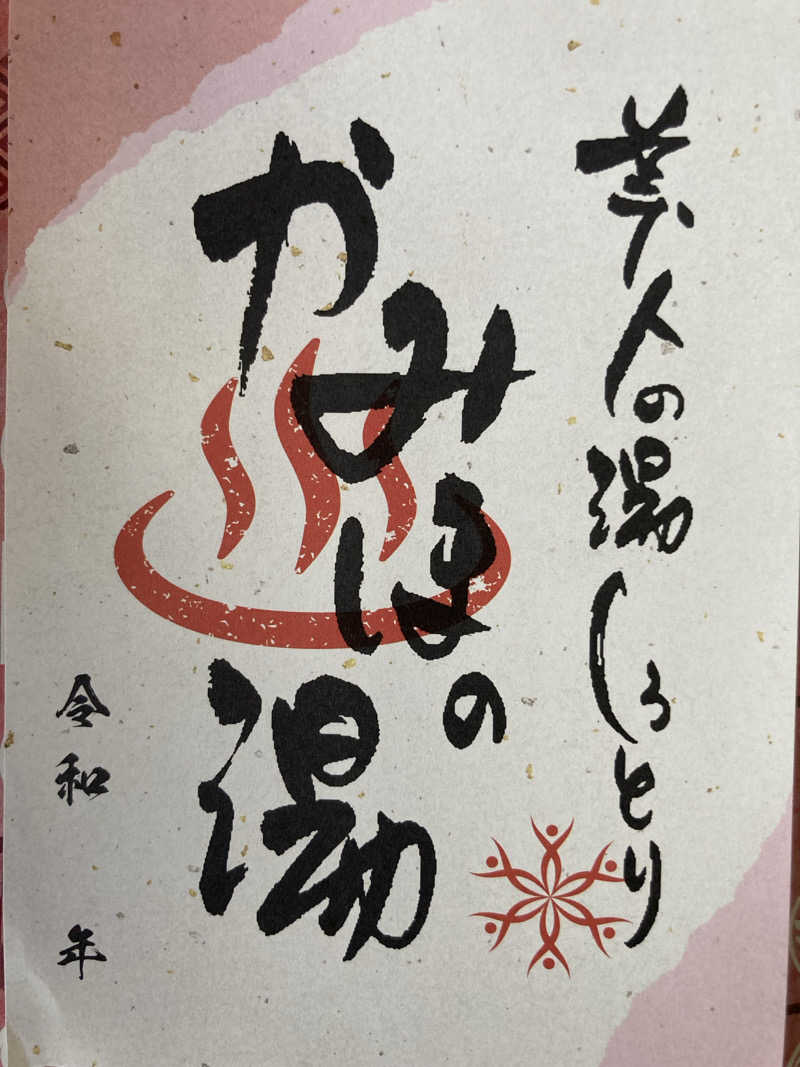 美人の湯しろとり
かみほの湯
令和　年